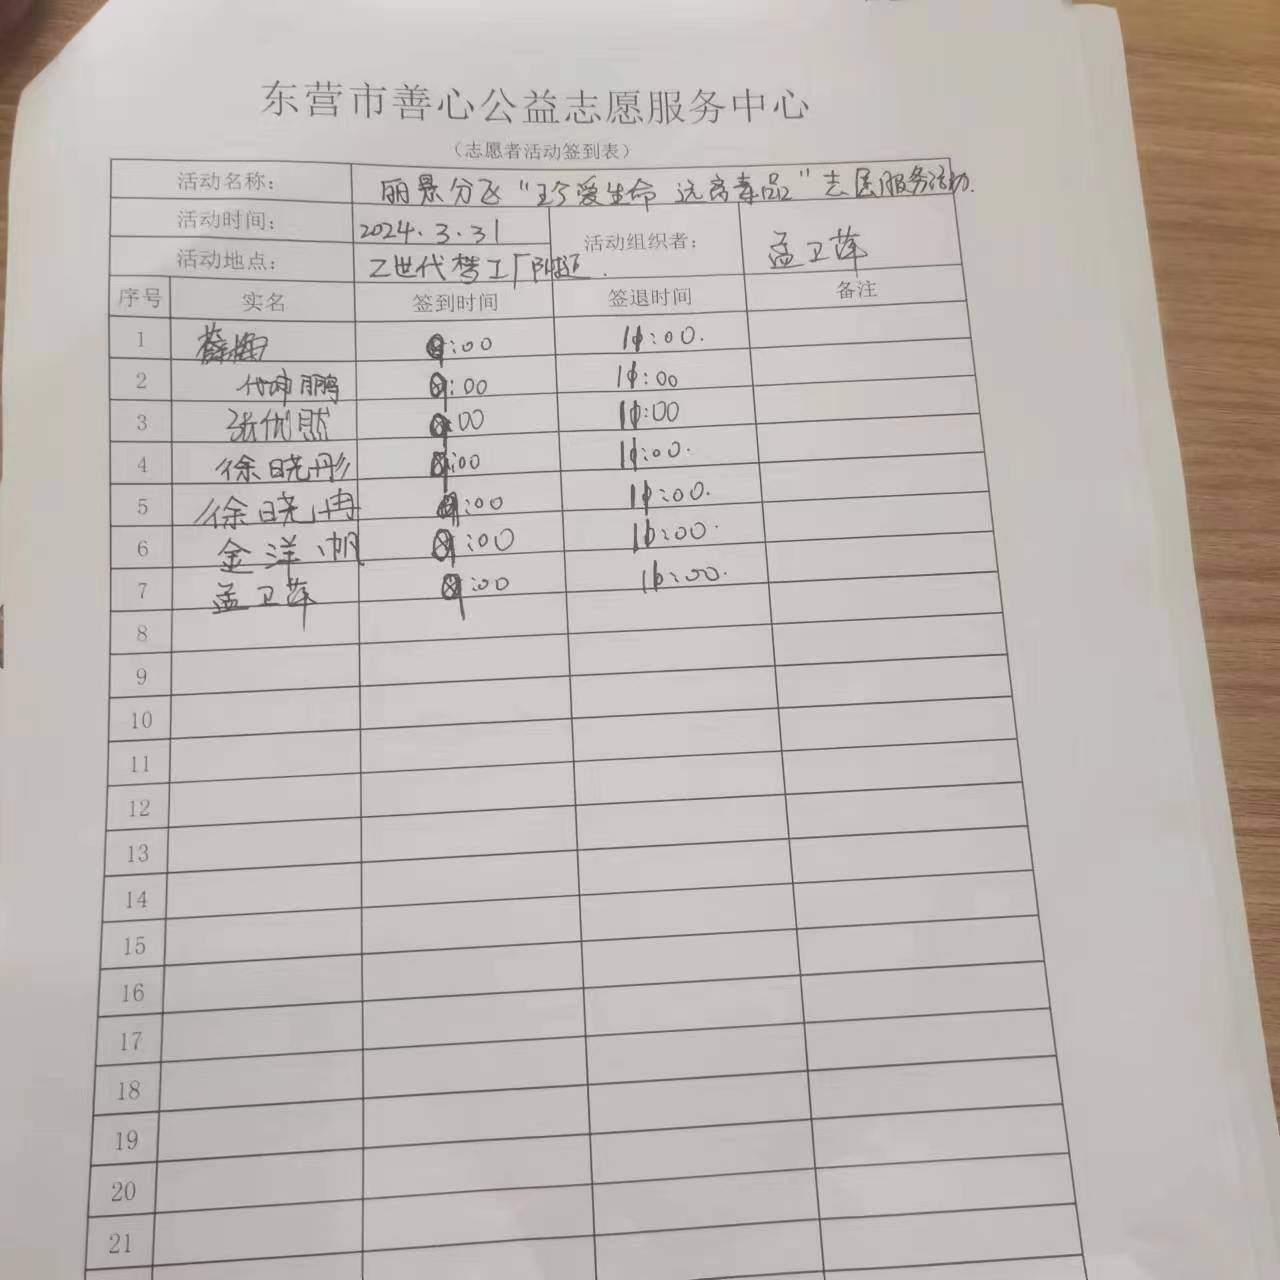 东营市善心公益志愿服务中心
（志愿者活动签到表）
活动名称： 丽景分飞“珍爱生命 远离毒品”志愿服务活动.
活动时间： 2024.3.31 活动组织者： 孟卫萍
活动地点： Z世代梦工厂附近.
序号 实名 签到时间 签退时间 备注
1 薛梅 9:00 11:00.
2 代坤鹏 9:00 11:00
3 张优然 9:00 11:00
4 徐晓彤 9:00 11:00.
5 徐晓冉 9:00 11:00.
6 金洋帆 9:00 11:00.
7 孟卫萍 9:00 11:00.
8
9
10
11
12
13
14
15
16
17
18
19
20
21